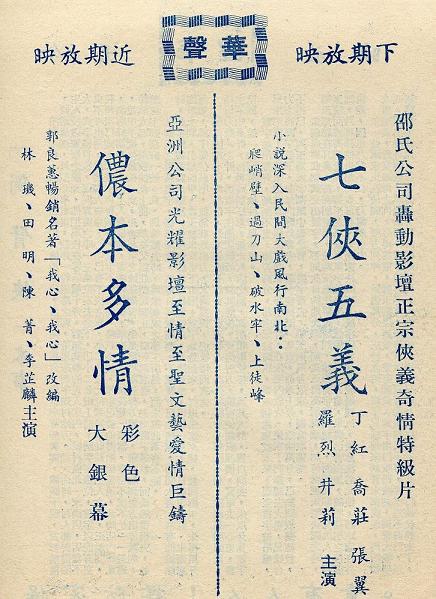 華聲
下期放映
邵氏公司轟動影壇正宗俠義奇情特級片
七俠五義
丁紅 喬莊 張翼
羅烈 井莉 主演
小說深入民間大戲風行南北：
爬峭壁、過刀山、破水牢、上徒峰
近期放映
亞洲公司光耀影壇至情至聖文藝愛情巨鑄
儂本多情
彩色
大銀幕
郭良蕙暢銷名著「我心、我心」改編
林璣、田明、陳菁、李芷麟主演